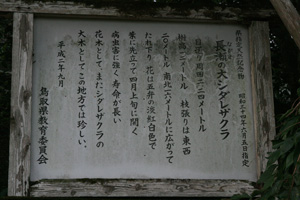 県指定天然記念物
長瀬の大シダレザクラ
昭和三十四年六月五日指定
目通り周囲二・四メートル
樹高二〇メートル 枝張りは東西
二〇メートル 南北一六メートルに広がって
たれ下り 花は五弁の淡紅白色で
葉に先立って四月上旬に開く
病虫害に強く 寿命が長い
花木として、またシダレザクラの
大木としてこの地方では珍しい。
平成二年九月
鳥取県教育委員会